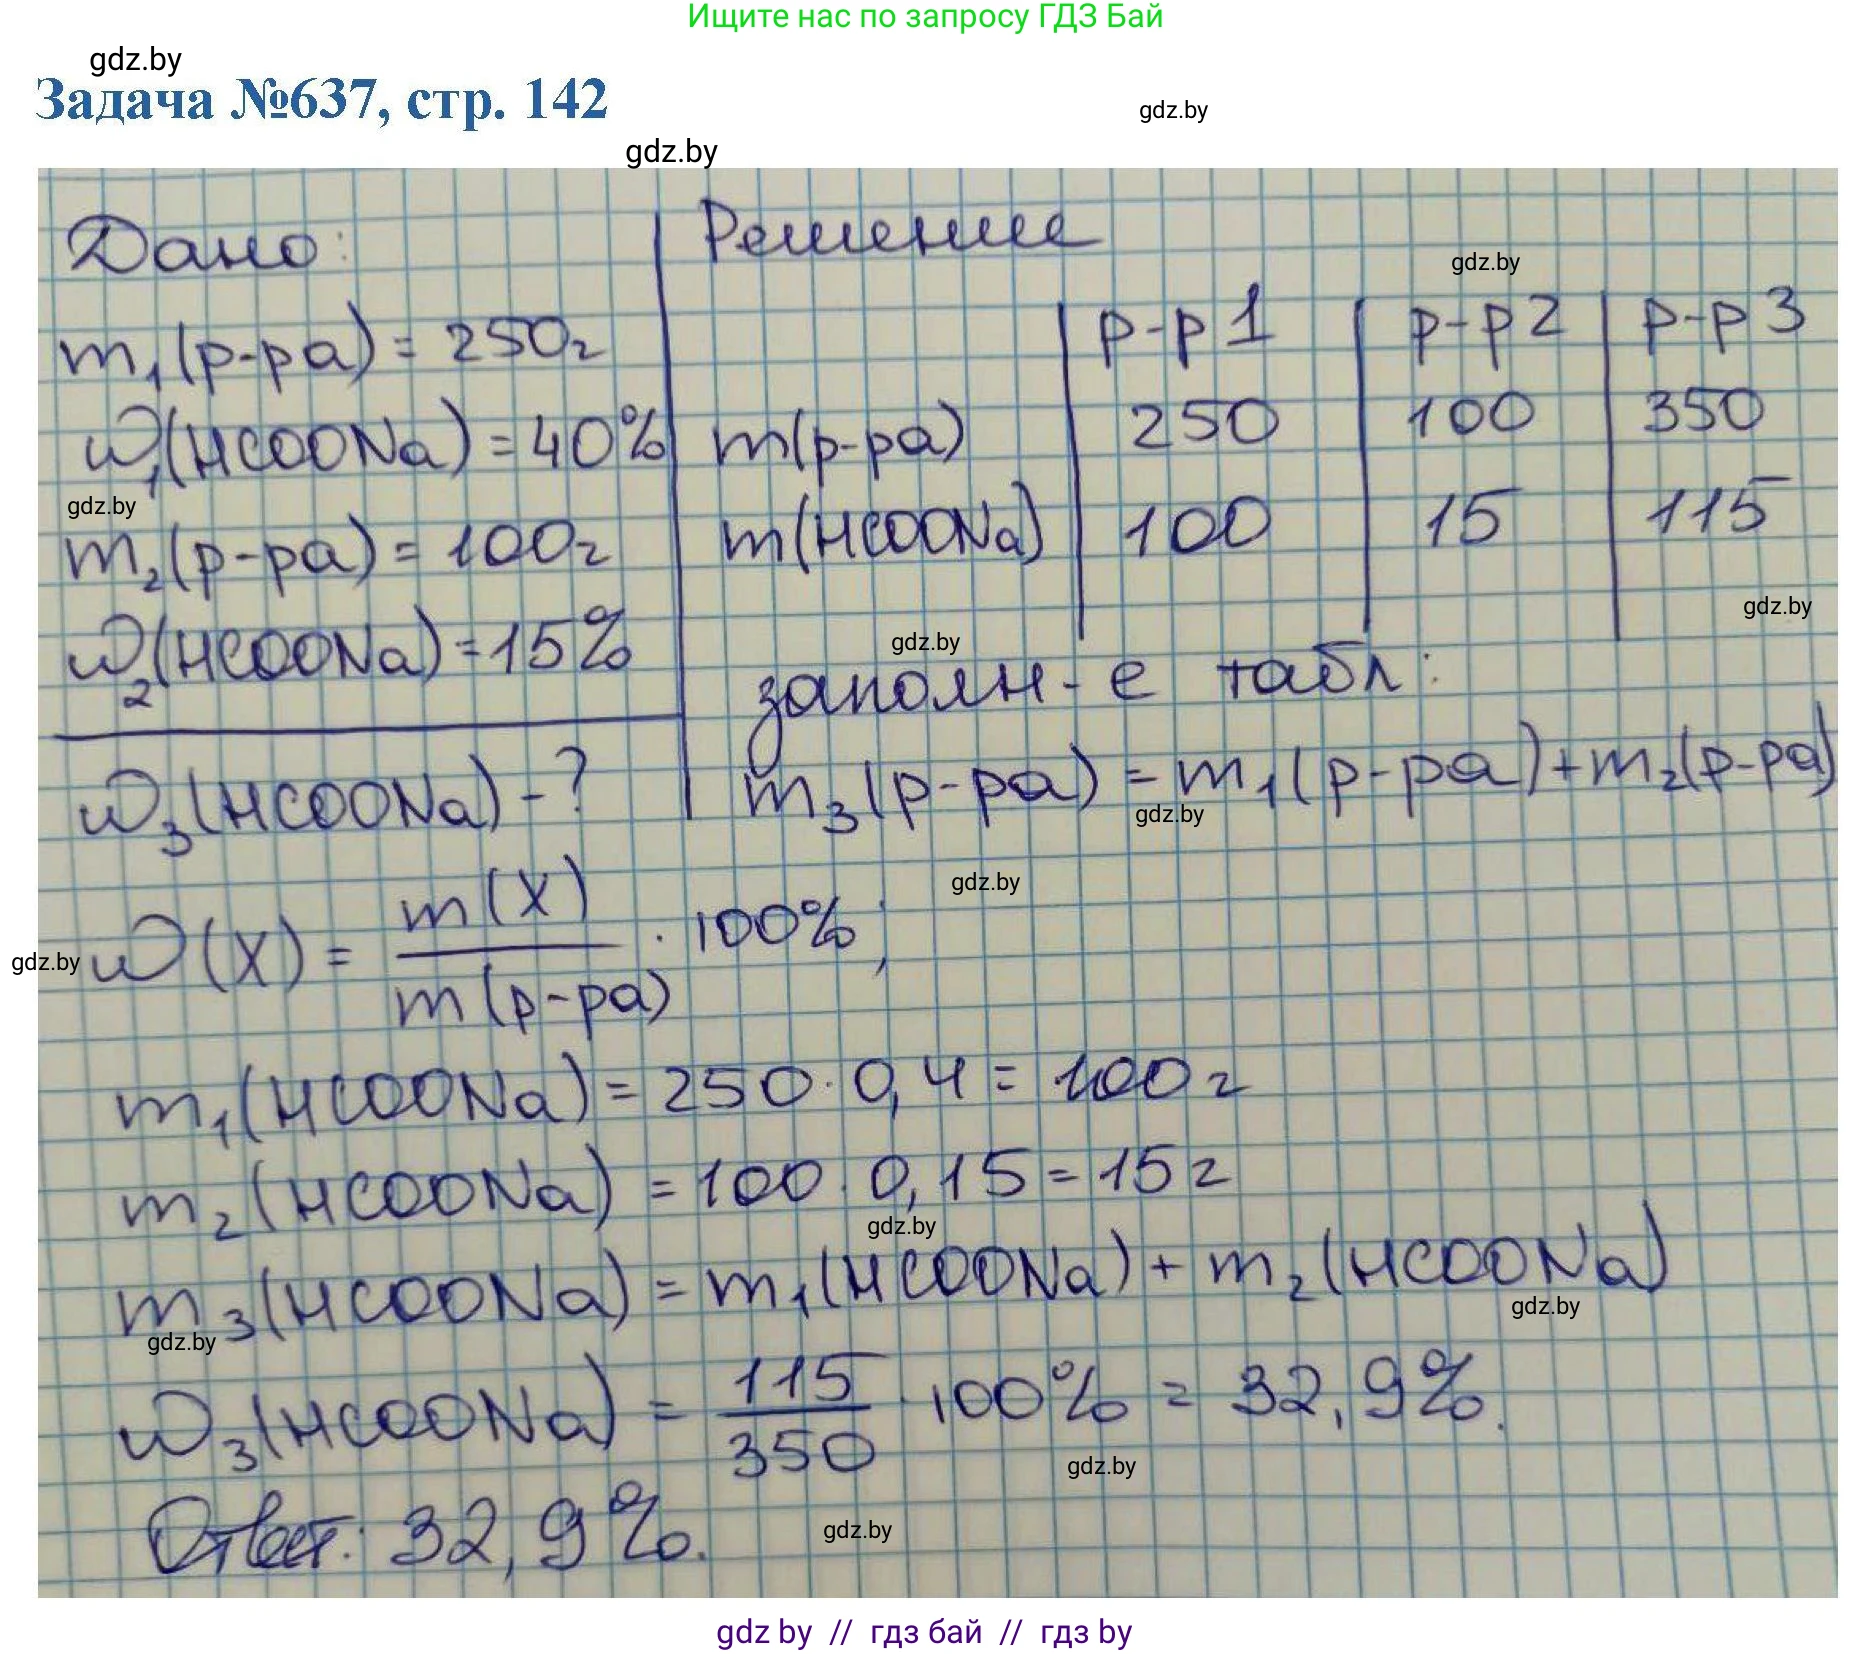 Ищите нас по запросу ГДЗ Бай
gdz.by
Задача №637, стр. 142
gdz.by
gdz.by
Дано:
Решение
gdz.by
р-р 1 р-р 2 р-р 3
m₁(р-ра) = 250г
m(р-ра) 250 100 350
ω₁(HCOONa) = 40%
gdz.by
m(HCOONa) 100 15 115
m₂(р-ра) = 100г
gdz.by
ω₂(HCOONa) = 15%
gdz.by
заполн-е табл:
m₃(р-ра) = m₁(р-ра) + m₂(р-ра)
gdz.by
ω₃(HCOONa) - ?
gdz.by
gdz.by
ω(X) = m(X) / m(р-ра) · 100%;
m₁(HCOONa) = 250 · 0,4 = 100 г
m₂(HCOONa) = 100 · 0,15 = 15 г
gdz.by
m₃(HCOONa) = m₁(HCOONa) + m₂(HCOONa)
gdz.by
gdz.by
ω₃(HCOONa) = 115 / 350 · 100% = 32,9%.
gdz.by
Ответ: 32,9%.
gdz.by
gdz by // гдз бай // гдз by